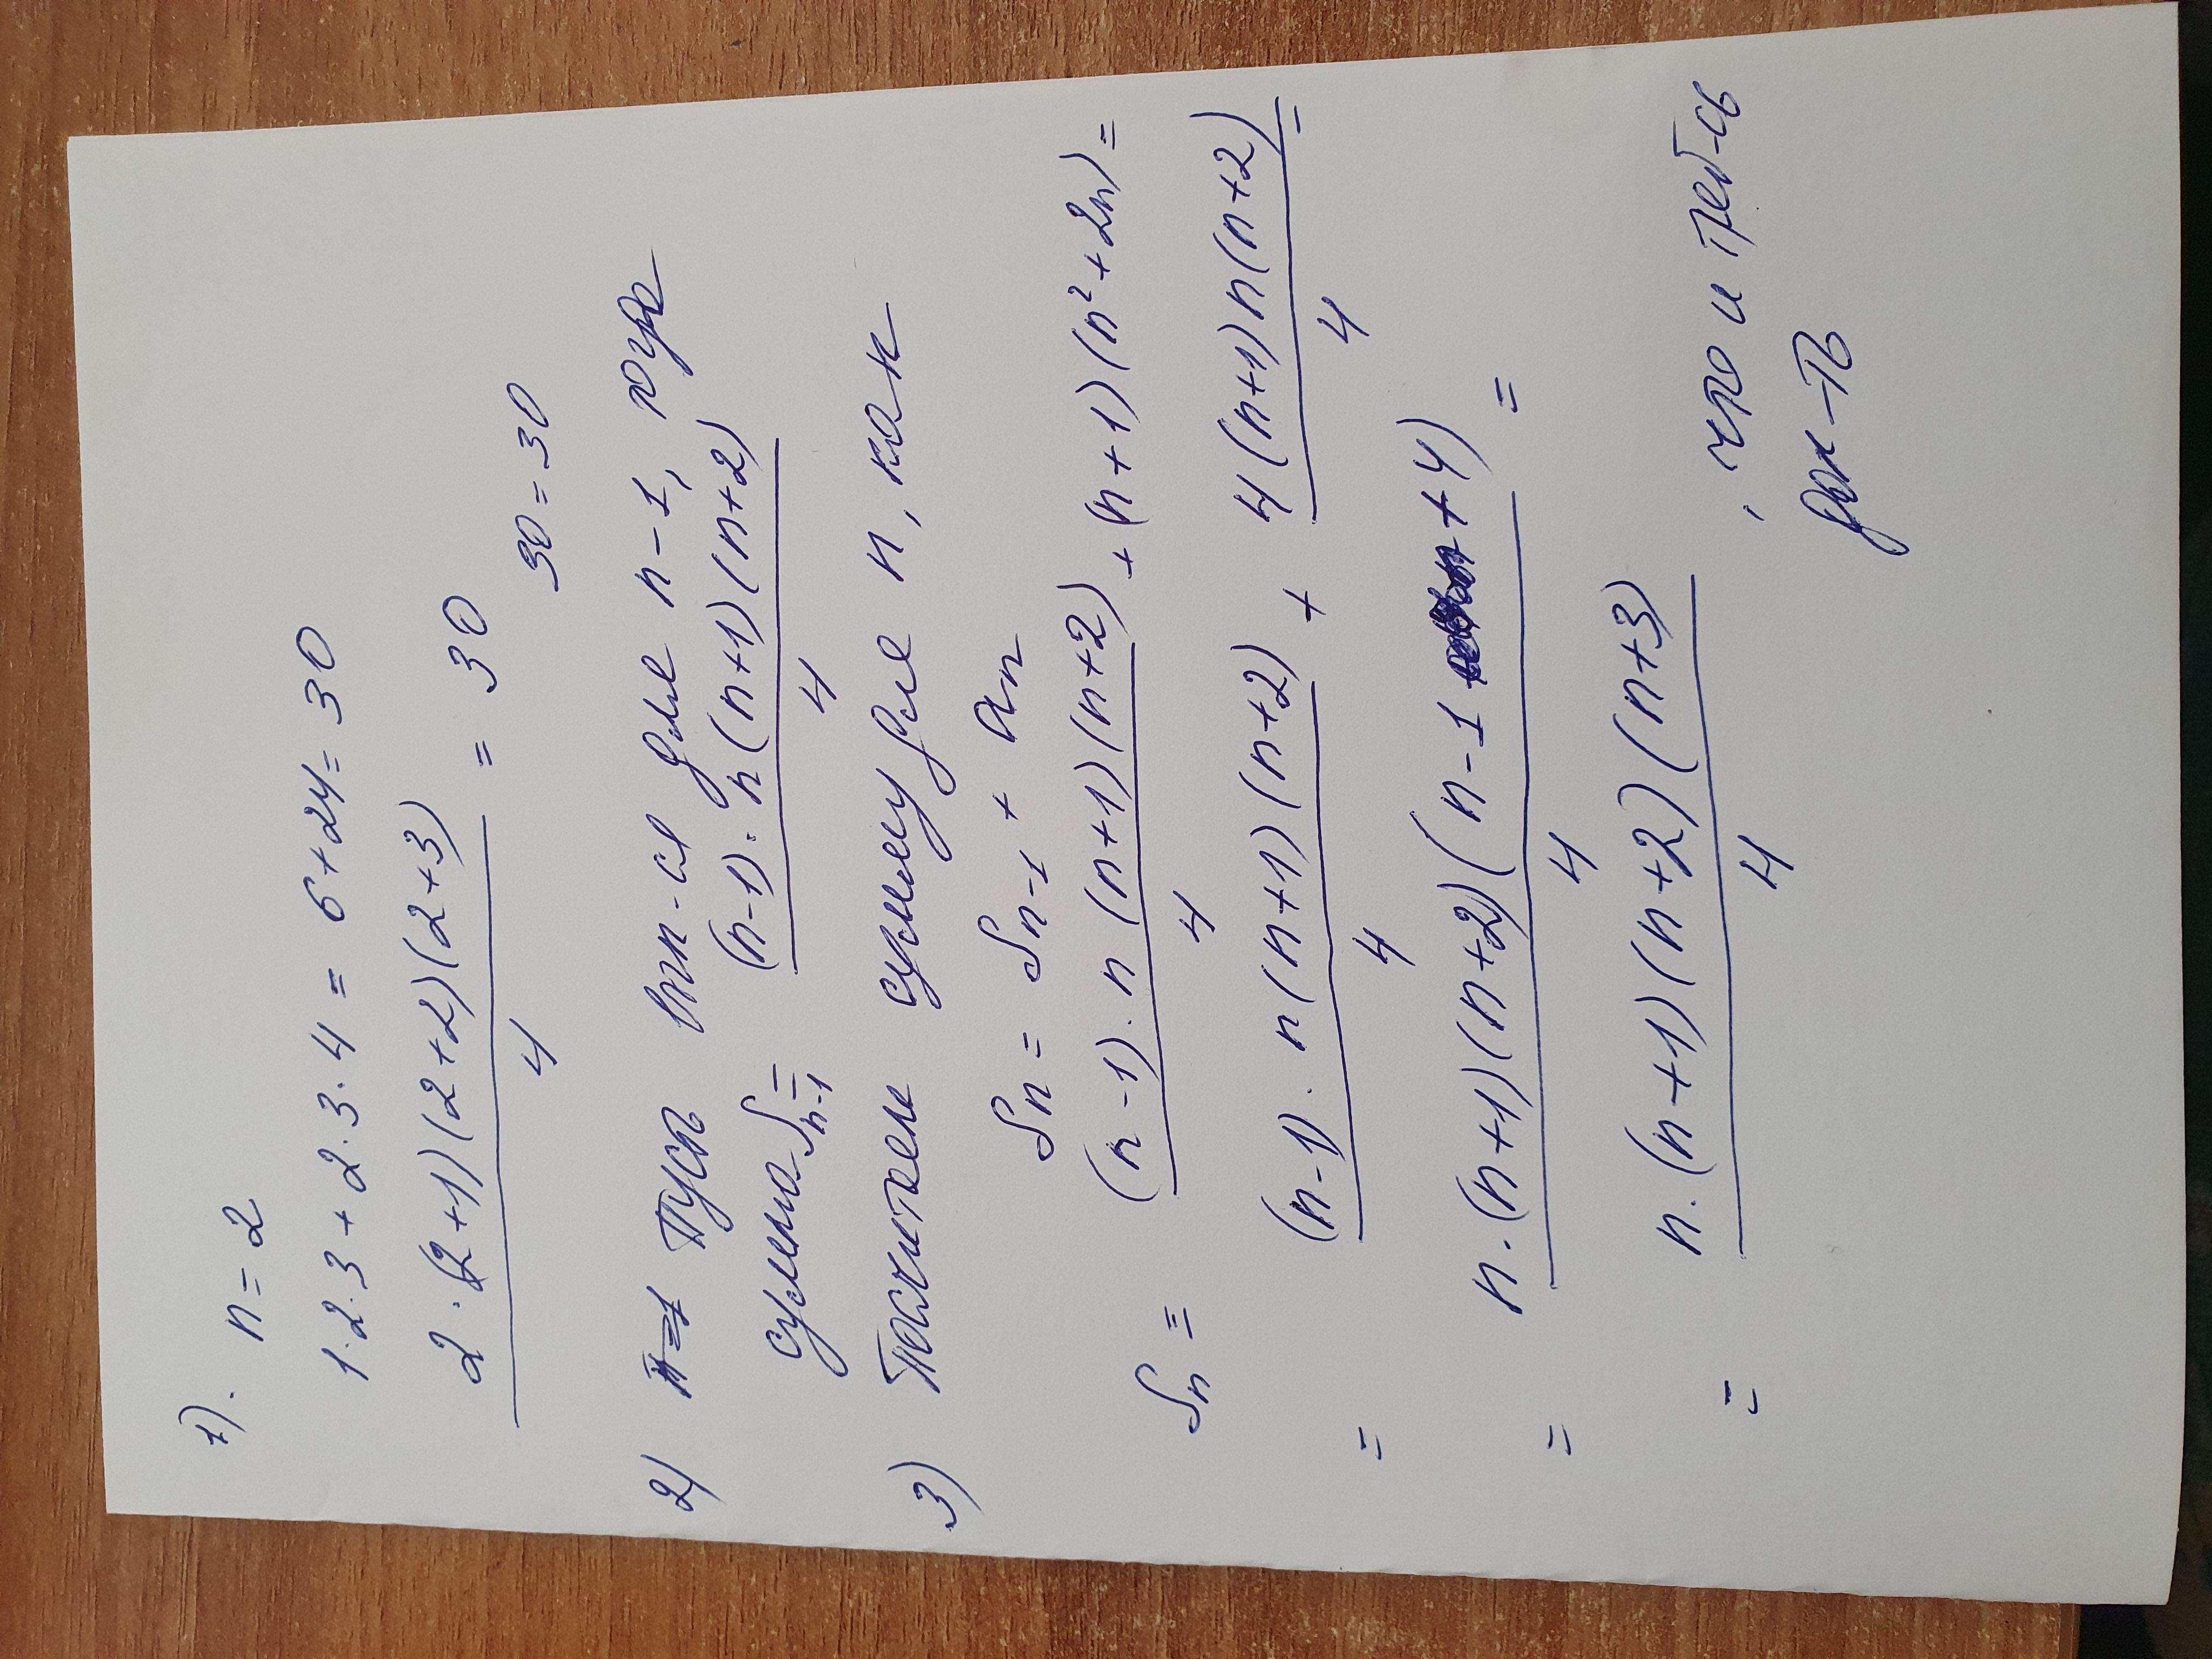 1). n = 2
1·2·3 + 2·3·4 = 6+24 = 30
2·(2+1)(2+2)(2+3) / 4 = 30
30 = 30
2) Пусть вып-ся для n-1, тогда
сумма S_{n-1} = (n-1)·n(n+1)(n+2) / 4
3) Посчитаем сумму для n, как
S_n = S_{n-1} + a_n
S_n = (n-1)·n(n+1)(n+2) / 4 + (n+1)(n²+2n) =
= (n-1)·n(n+1)(n+2) / 4 + 4(n+1)n(n+2) / 4 =
= n·(n+1)(n+2)(n-1+4) / 4 =
= n·(n+1)(n+2)(n+3) / 4 , что и треб-сь
док-ть